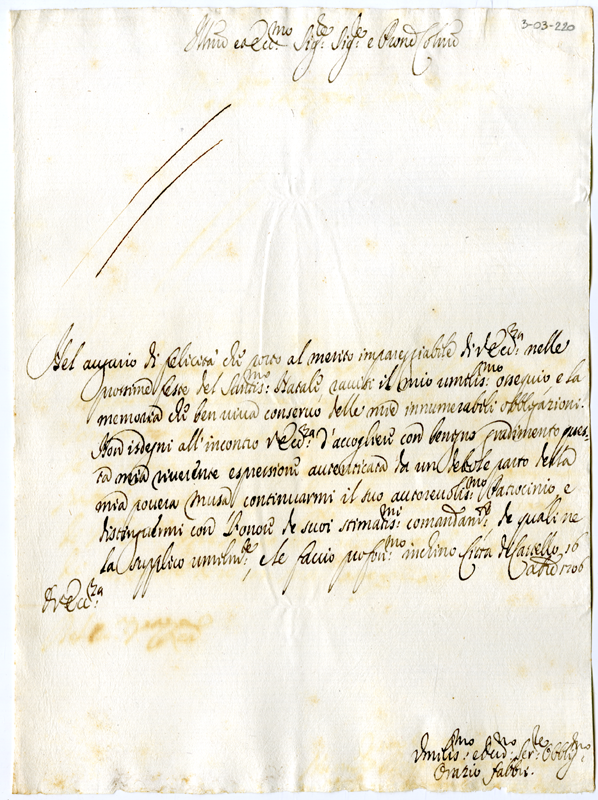 3-03-220
Illmo ed Ecc.mo Sig.re Sig.re e Pron Colmo
Nel augurio di felicità che porto al merito impareggiabile di V Ecc.za nelle
prossime feste del Santis.mo Natale, ravisi il mio umilis.mo ossequio e la
memoria che ben viva conservo delle mie innumerabili obbligazioni.
Non isdegni all'incontro V Ecc.za d'accogliere con benigno gradimento ques-
ta mia riverente espressione autenticata da un debole parto della
mia povera musa, continuarmi il suo autorevolis.mo Patrocinio, e
distinguermi con l'onore de suoi stimatis.mi comandam.ti de quali ne
la supplico umilm.te, e le faccio profon.mo inchino Citta di Castello 16
1706
Di V Ecc.za
Umilis.mo e Ser.re Obblig.mo
Orazio Fabbri.